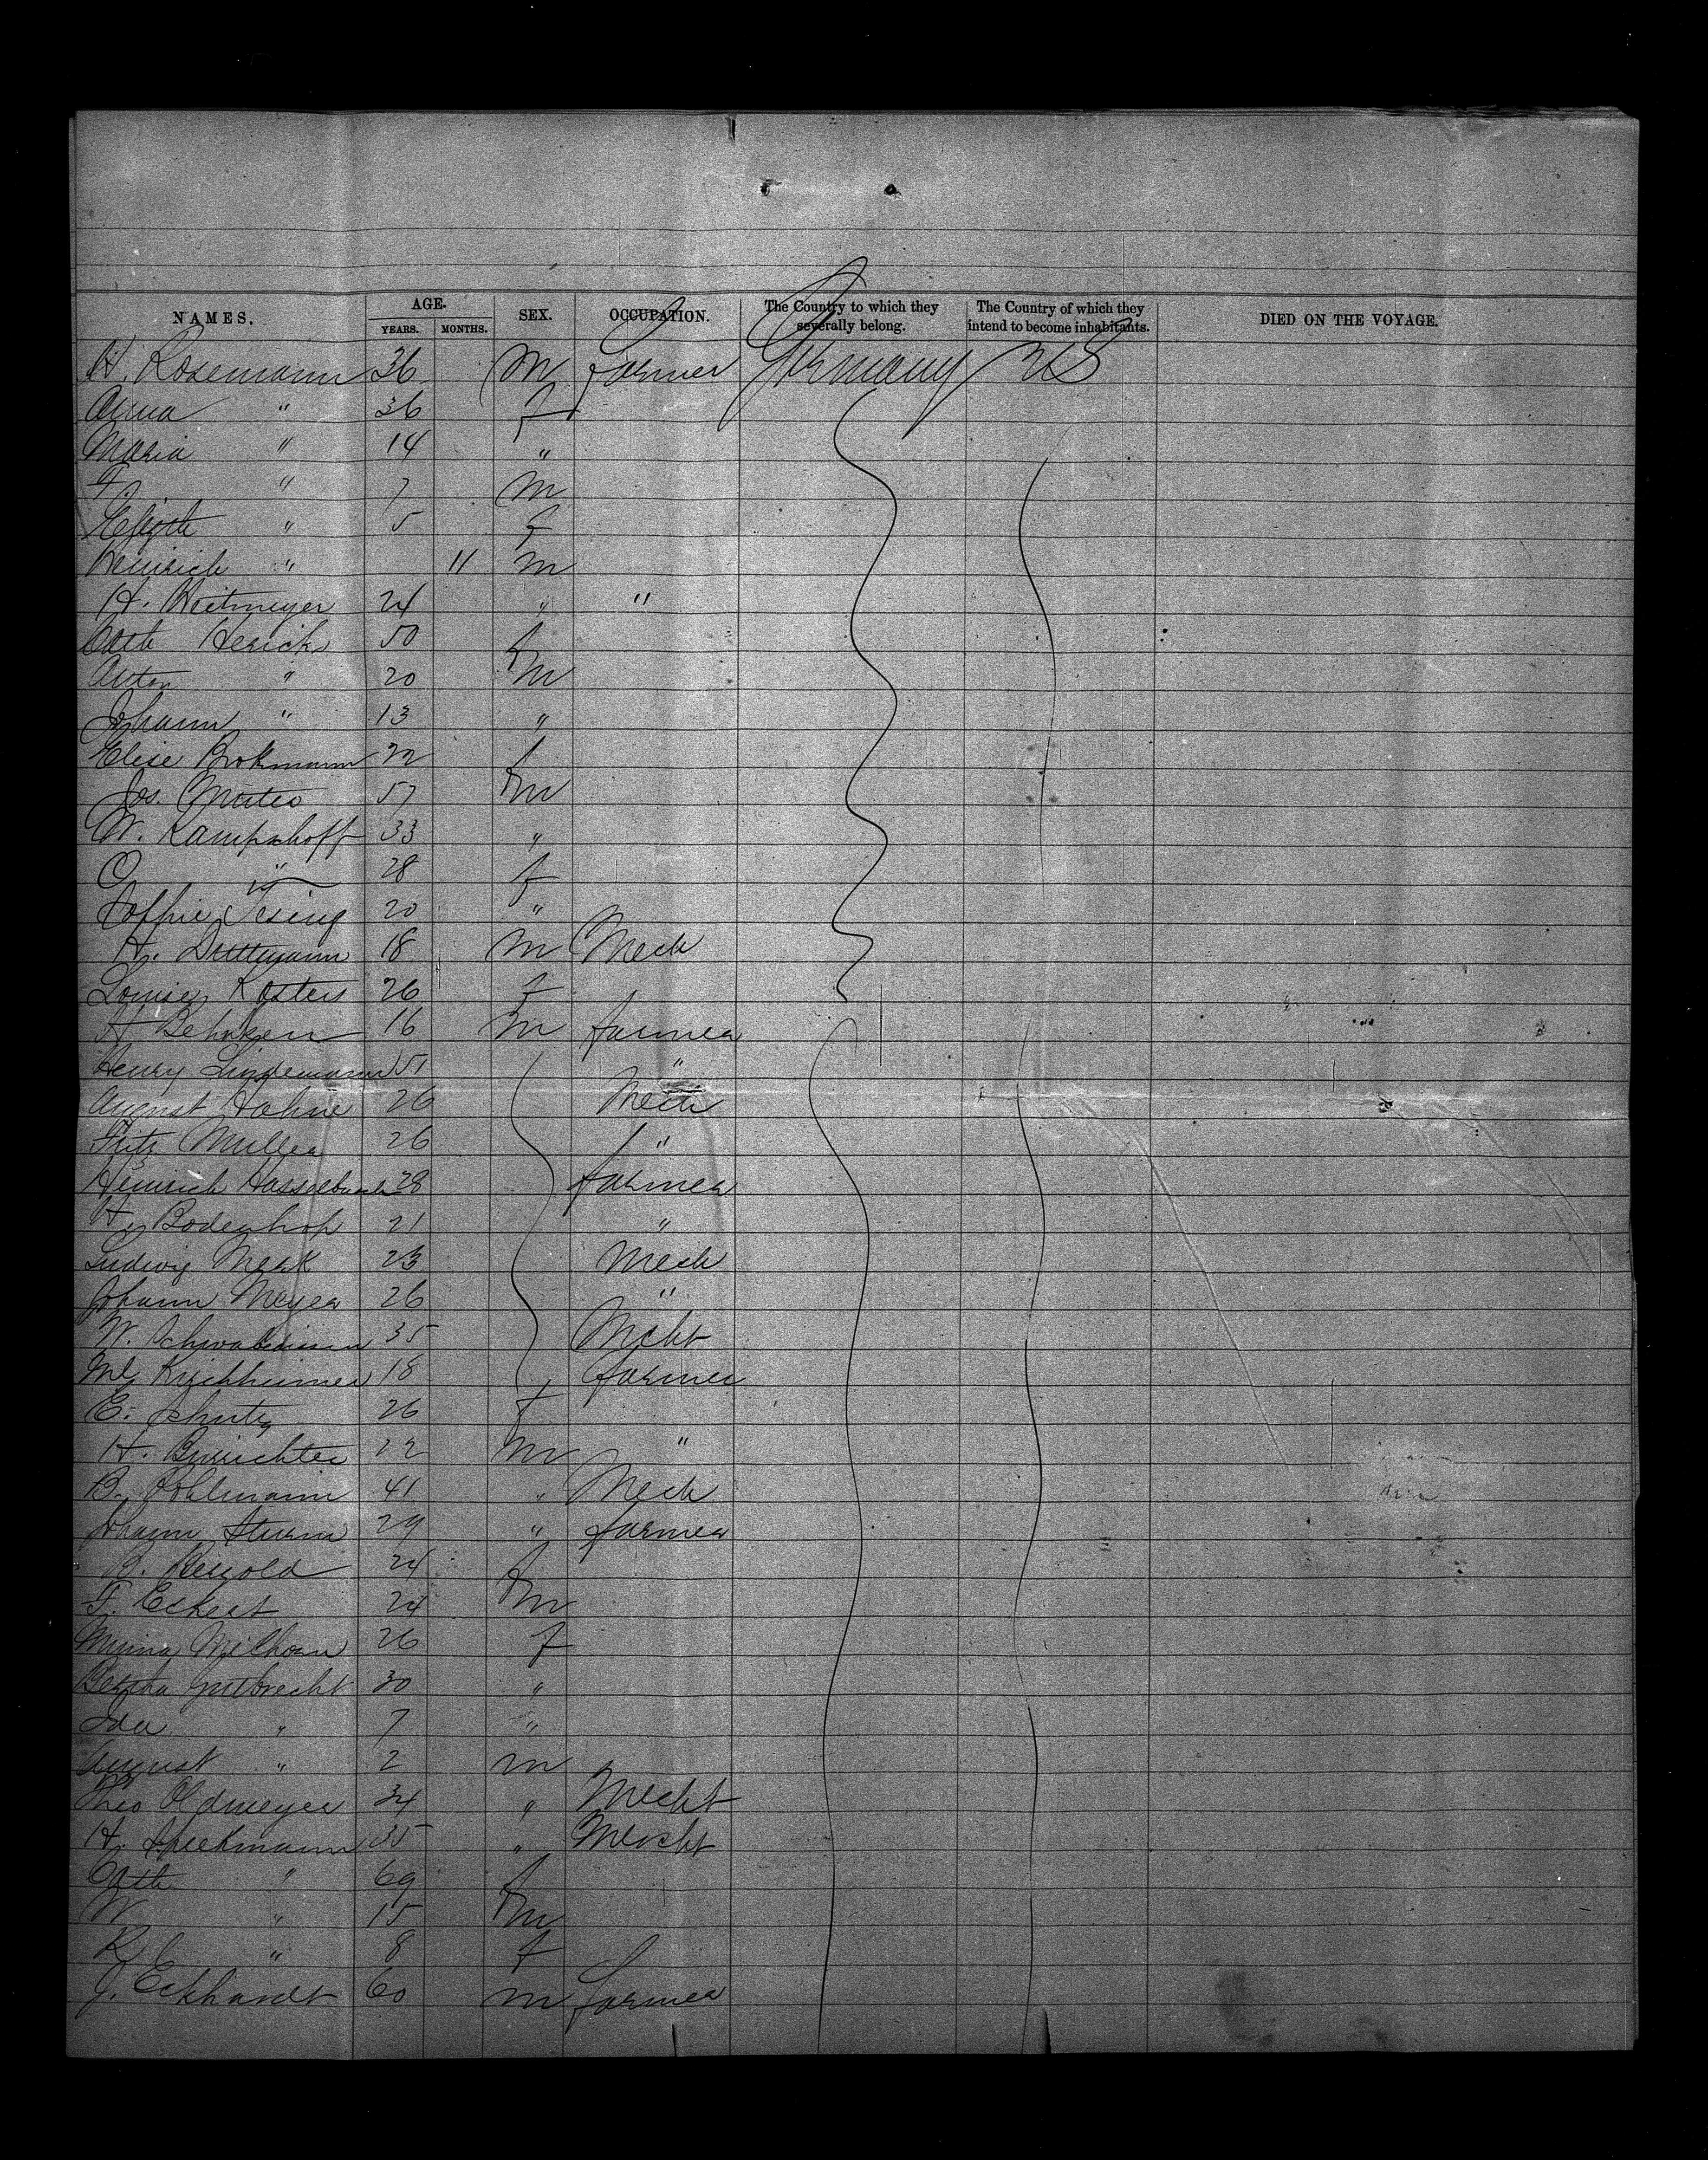 NAMES. AGE. SEX. OCCUPATION. The Country to which they severally belong. The Country of which they intend to become inhabitants. DIED ON THE VOYAGE.
YEARS. MONTHS.
H. Rosemann 36 m farmer Germany US
Anna " 36 f
Maria " 14 "
F. " 7 m
" 5 f
Heinrich " 11 m
H. Heitmeyer 24 " "
Cath Herick 50 f
Anton " 20 m
Johann " 13 "
Elise Brokmann 22 f
Jos. 57 m
W. Kampshoff 33 "
O " 28 f
Sophie Tesing 20 "
H. 18 m Mech
Louise Kosters 26 f
H Behnken 16 m farmer
Henry Lindemann 51 "
August Hahne 26 Mech
Fritz Muller 26 "
Heinrich 28 farmer
Hy Bodenhop 21 "
Ludwig Merk 23 Mech
Johann Meyer 26 "
W. 35 Mcht
Kirchheimer 18 farmer
E. Schutz 26 f
H. 22 m "
B. Pohlmann 41 " Mech
Johann Sturm 29 " farmer
B. 24 f
F. Eckert 24 m
Minna 26 f
Bertha Gutbrecht 30 "
Ida " 7 "
August " 2 m
Theo Oldmeyer 34 " Mecht
H. Spiekmann 35 " Mercht
Cath " 69 f
W " 15 m
K " 8 f
J. Eckhardt 60 m farmer